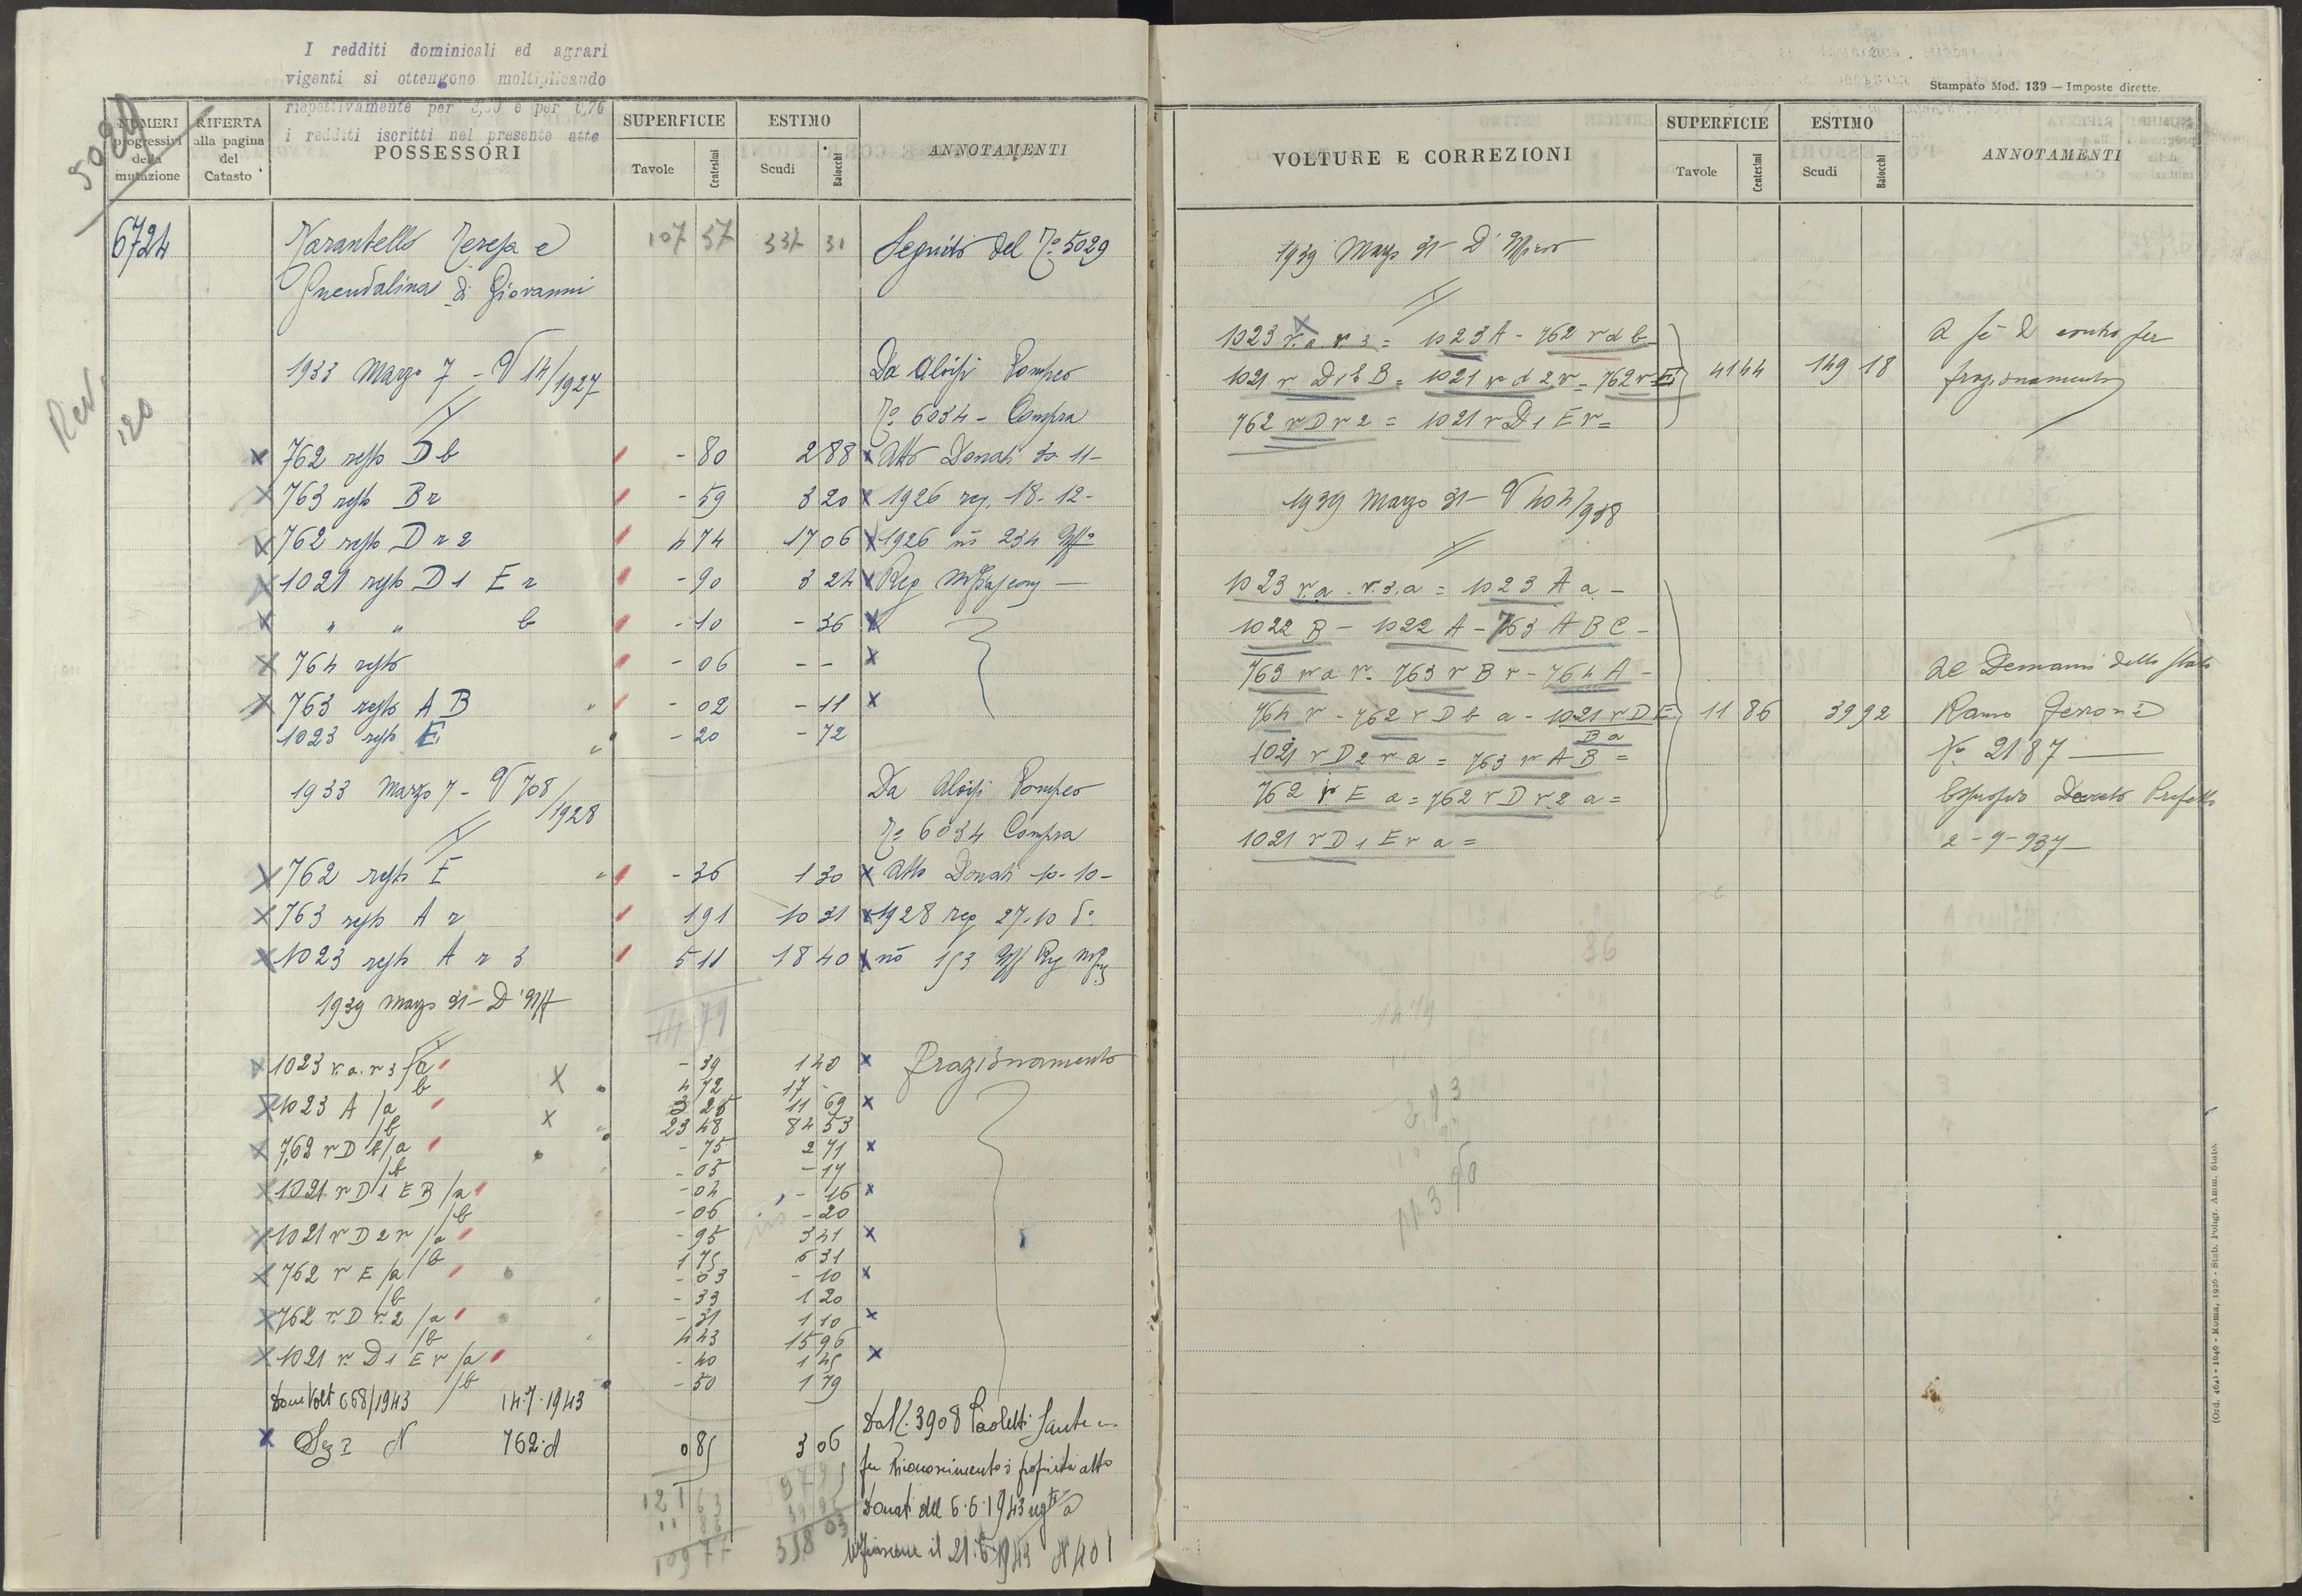 I redditi dominicali ed agrari
vigenti si ottengono moltiplicando
rispettivamente per 3,50 e per 0,76
i redditi iscritti nel presente atto
5029
NUMERI progressivi della mutazione
RIFERTA alla pagina del Catasto
POSSESSORI
SUPERFICIE
Tavole Centesimi
ESTIMO
Scudi Baiocchi
ANNOTAMENTI
Rev.
120
6724 Teresa e 107 57 337 31 Seguito del No 5029
Guendalina di Giovanni
1933 Marzo 7 - V 14/1927 Da Aloisi Pompeo
No 6034 - Compra
x 762 resto D b - 80 2 88 x Atto Donati 30-11-
x 763 resto B r - 59 3 20 x 1926 reg. 18-12-
x 762 resto D r 2 4 74 17 06 x 1926 no 234
x 1021 resto D 1 E r - 90 3 24 x Reg
x " " b - 10 - 36 x
x 764 resto - 06 - - x
x 763 resto A B - 02 - 11 x
1023 resto E - 20 - 72
1933 Marzo 7 - V 708/1928 Da Aloisi Pompeo
No 6034 Compra
x 762 resto E - 36 1 30 x Atto Donati 10-10-
x 763 resto A r 1 91 10 31 x 1928 reg 27.10 do
x 1023 resto A r 3 5 11 18 40 x no 153 Reg
1939 Marzo 31 - D'Uff
14 79
x 1023 r.a.r 3 /a - 39 1 40 x Frazionamento
/b 4 72 17 -
x 1023 A /a 3 25 11 69 x
/b 23 48 84 53
x 762 r D b/a - 75 2 71 x
/b - 05 - 17
x 1021 r D 1 E B /a - 04 - 16 x
/b - 06 - 20
x 1021 r D 2 r /a - 95 3 41 x
/b 1 75 6 31
x 762 r E /a - 03 - 10 x
/b - 33 1 20
x 762 r. D r. 2 /a - 31 1 10 x
/b 4 43 15 96
x 1021 r. D 1 E r /a - 40 1 45 x
/b - 50 1 79
Volt 668/1943 14.7.1943 Dal C. 3908 Paoletti Sante
x Sez N 762 0 85 3 06 per riconoscimento proprietà atto
121 63 Donati del 6.6.1943
11 86 39 92
109 77 358 03 il 21.6.1943 N 401
Stampato Mod. 139 — Imposte dirette.
VOLTURE E CORREZIONI
SUPERFICIE
Tavole Centesimi
ESTIMO
Scudi Baiocchi
ANNOTAMENTI
1939 Marzo 31 - D'Ufficio
1023 r.a r 3 = 1023 A - 762 r d b - A se e contro per
1021 r D 1 E B = 1021 r d 2 r = 762 r E 41 44 149 18 frazionamento
762 r D r 2 = 1021 r D 1 E r =
1939 Marzo 31 - V 404/938
1023 r.a . r.3.a = 1023 A a -
1022 B - 1022 A - 763 A B C -
763 r a r - 763 r B r - 764 A - Al Demanio dello Stato
764 r - 762 r D b a - 1021 r D E 11 86 39 92 Ramo
B a
1021 r D 2 r a = 763 r A B = No 2187
762 r E a = 762 r D r 2 a = Esproprio Decreto
1021 r D 1 E r a = 2-9-937
86
14 79
293
(Ord. 464) - 1646 - Roma, 1926 - Stab. Poligr. Amm. Stato.